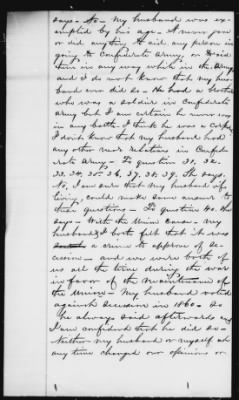 says - No - My husband was ex-
empted by his age. I never gave
or did anything to aid any person in
going to Confederate Army, or to aid
them in any way while in the Army
and I do not know that my hus-
band ever did so - He had a brother
who was a soldier in Confederate
Army but I am certain he never was
in any battle. I think he was a
I don't know that my husband had
any other near relations in Confed-
erate Army - To question 31. 32.
33. 34. 35. 36. 37. 38. 39. She says.
No, I am sure that my husband if
living could make same answer to
these questions - To question 40 she
says - With the Union Cause - My
husband & I both felt that it was
a crime to approve of Se-
cession - and we were both of
us all the time during the war
in favor of the maintenance of
the Union - My husband voted
against Secession in 1860 - So
he always said afterwards and
I am confident that he did so -
Neither my husband or myself at
any time changed our opinions or